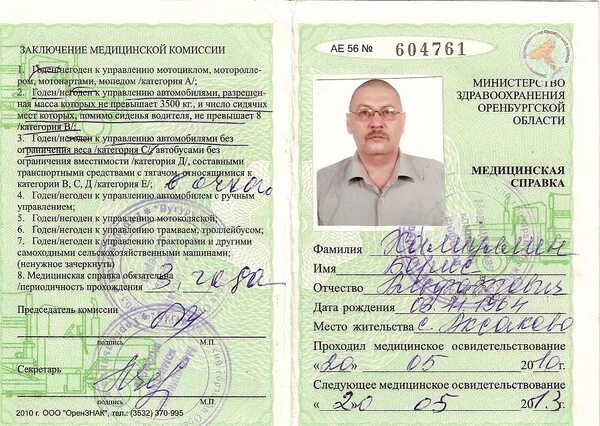 ЗАКЛЮЧЕНИЕ МЕДИЦИНСКОЙ КОМИССИИ
1. Годен/негоден к управлению мотоциклом, мотороллe-
ром, мотонартами, мопедом /категория А/;
2. Годен/негоден к управлению автомобилями, разрешен-
ная масса которых не превышает 3500 кг., и число сидячих
мест которых, помимо сиденья водителя, не превышает 8
/категория В/;
3. Годен/негоден к управлению автомобилями без
ограничения веса /категория С/, автобусами без
ограничения вместимости /категория Д/, составными
транспортными средствами с тягачом, относящимися к
категории В, С, Д /категория Е/;
4. Годен/негоден к управлению автомобилем с ручным
управлением;
5. Годен/негоден к управлению мотоколяской;
6. Годен/негоден к управлению трамваем, троллейбусом;
7. Годен/негоден к управлению тракторами и другими
самоходными сельскохозяйственными машинами;
(ненужное зачеркнуть)
8. Медицинская справка обязательна
/периодичность прохождения 3 года
Председатель комиссии
подпись М.П.
Секретарь
подпись М.П.
2010 г. ООО "ОренЗНАК", тел.: (3532) 370-995
АЕ 56 № 604761
МИНИСТЕРСТВО
ЗДРАВООХРАНЕНИЯ
ОРЕНБУРГСКОЙ
ОБЛАСТИ
МЕДИЦИНСКАЯ
СПРАВКА
Фамилия
Имя Борис
Отчество
Дата рождения
Место жительства с. Аксаково
Проходил медицинское освидетельствование
«20» 05 2010г.
Следующее медицинское освидетельствование
« 20 » 05 2013